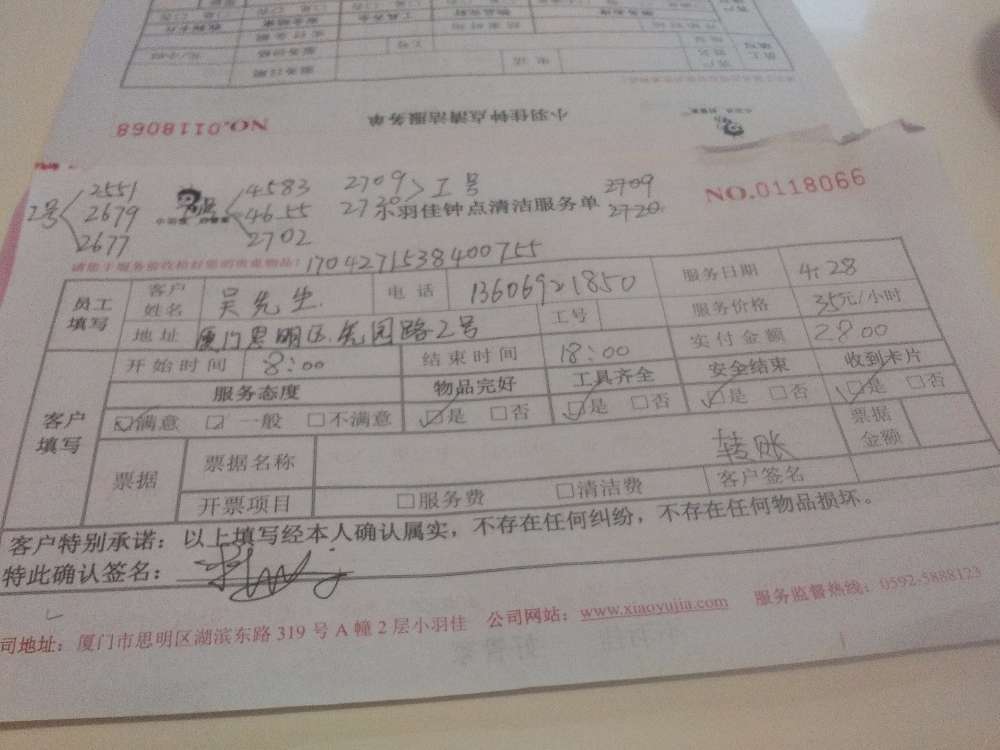 NO.0118068
小羽佳钟点清洁服务单
2551 4583 2709 工号 2709 NO.0118066
2号 2679 4655 2720 小羽佳钟点清洁服务单 2720
2677 2702
1704271538400755
员工填写 客户姓名 吴先生 电话 13606921850 服务日期 4.28
地址 厦门思明区 园路2号 工号 服务价格 35元/小时
客户填写 开始时间 8:00 结束时间 18:00 实付金额 2800
服务态度 物品完好 工具齐全 安全结束 收到卡片
满意 一般 不满意 是 否 是 否 是 否 是 否
票据 票据名称 转账 票据金额
开票项目 服务费 清洁费 客户签名
客户特别承诺：以上填写经本人确认属实，不存在任何纠纷，不存在任何物品损坏。
特此确认签名：
司地址：厦门市思明区湖滨东路 319 号 A 幢 2 层小羽佳 公司网站：www.xiaoyujia.com 服务监督热线：0592-5888123